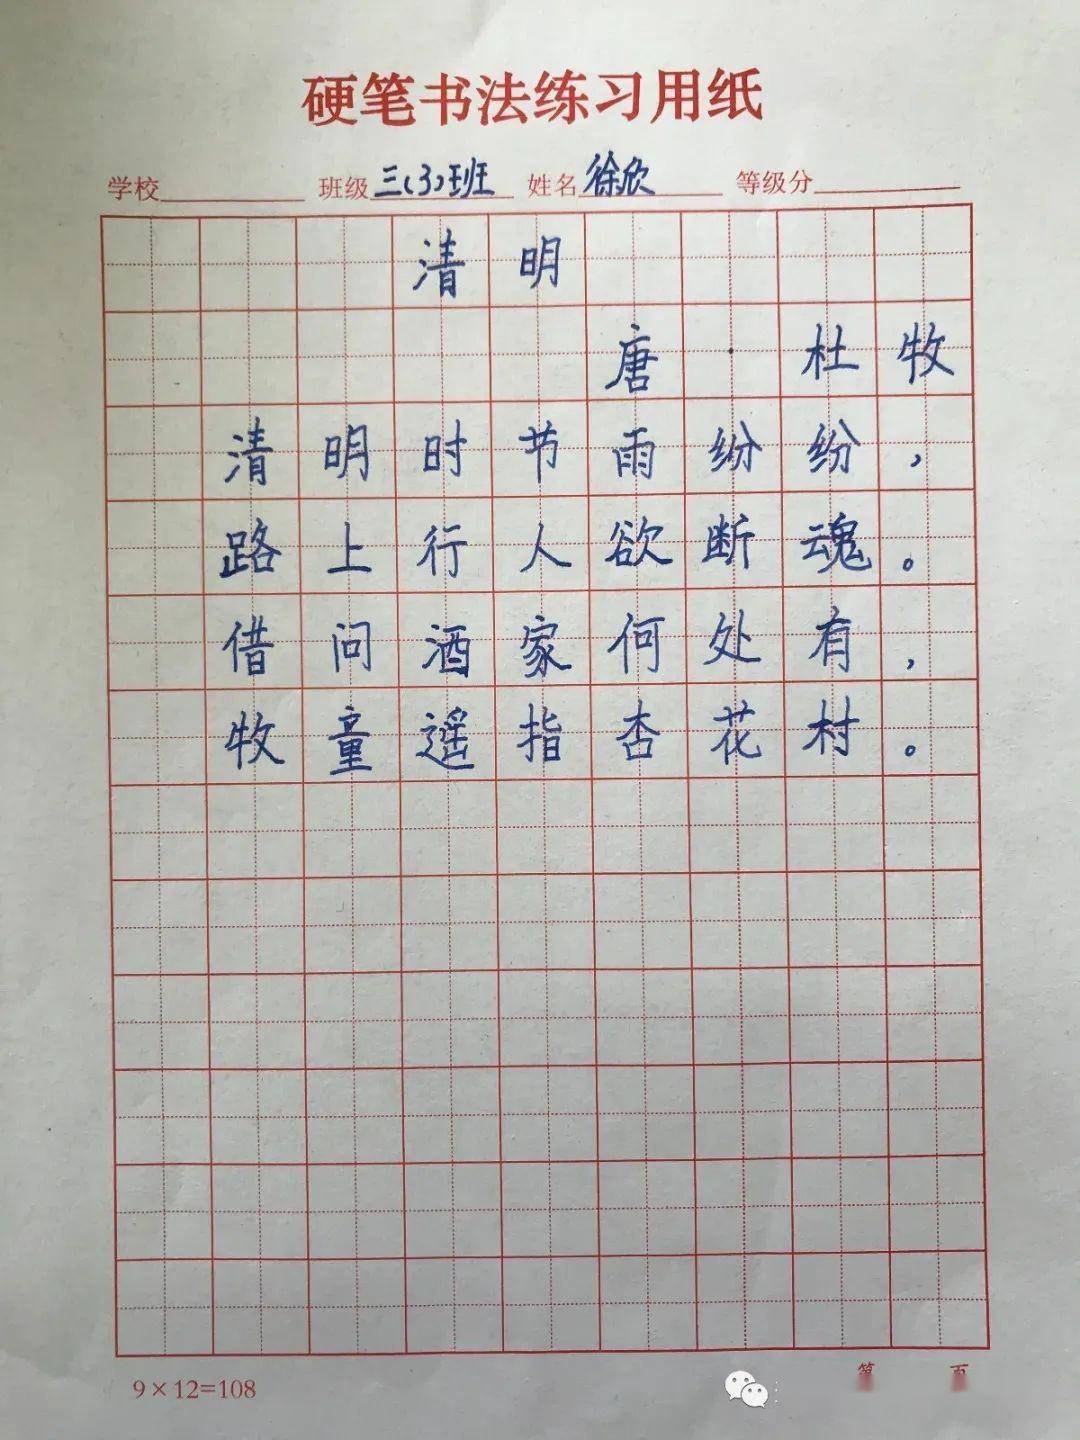 硬笔书法练习用纸
学校 班级三(3)班 姓名徐欣 等级分
清明
唐·杜牧
清明时节雨纷纷,
路上行人欲断魂。
借问酒家何处有,
牧童遥指杏花村。
9×12=108 第 页